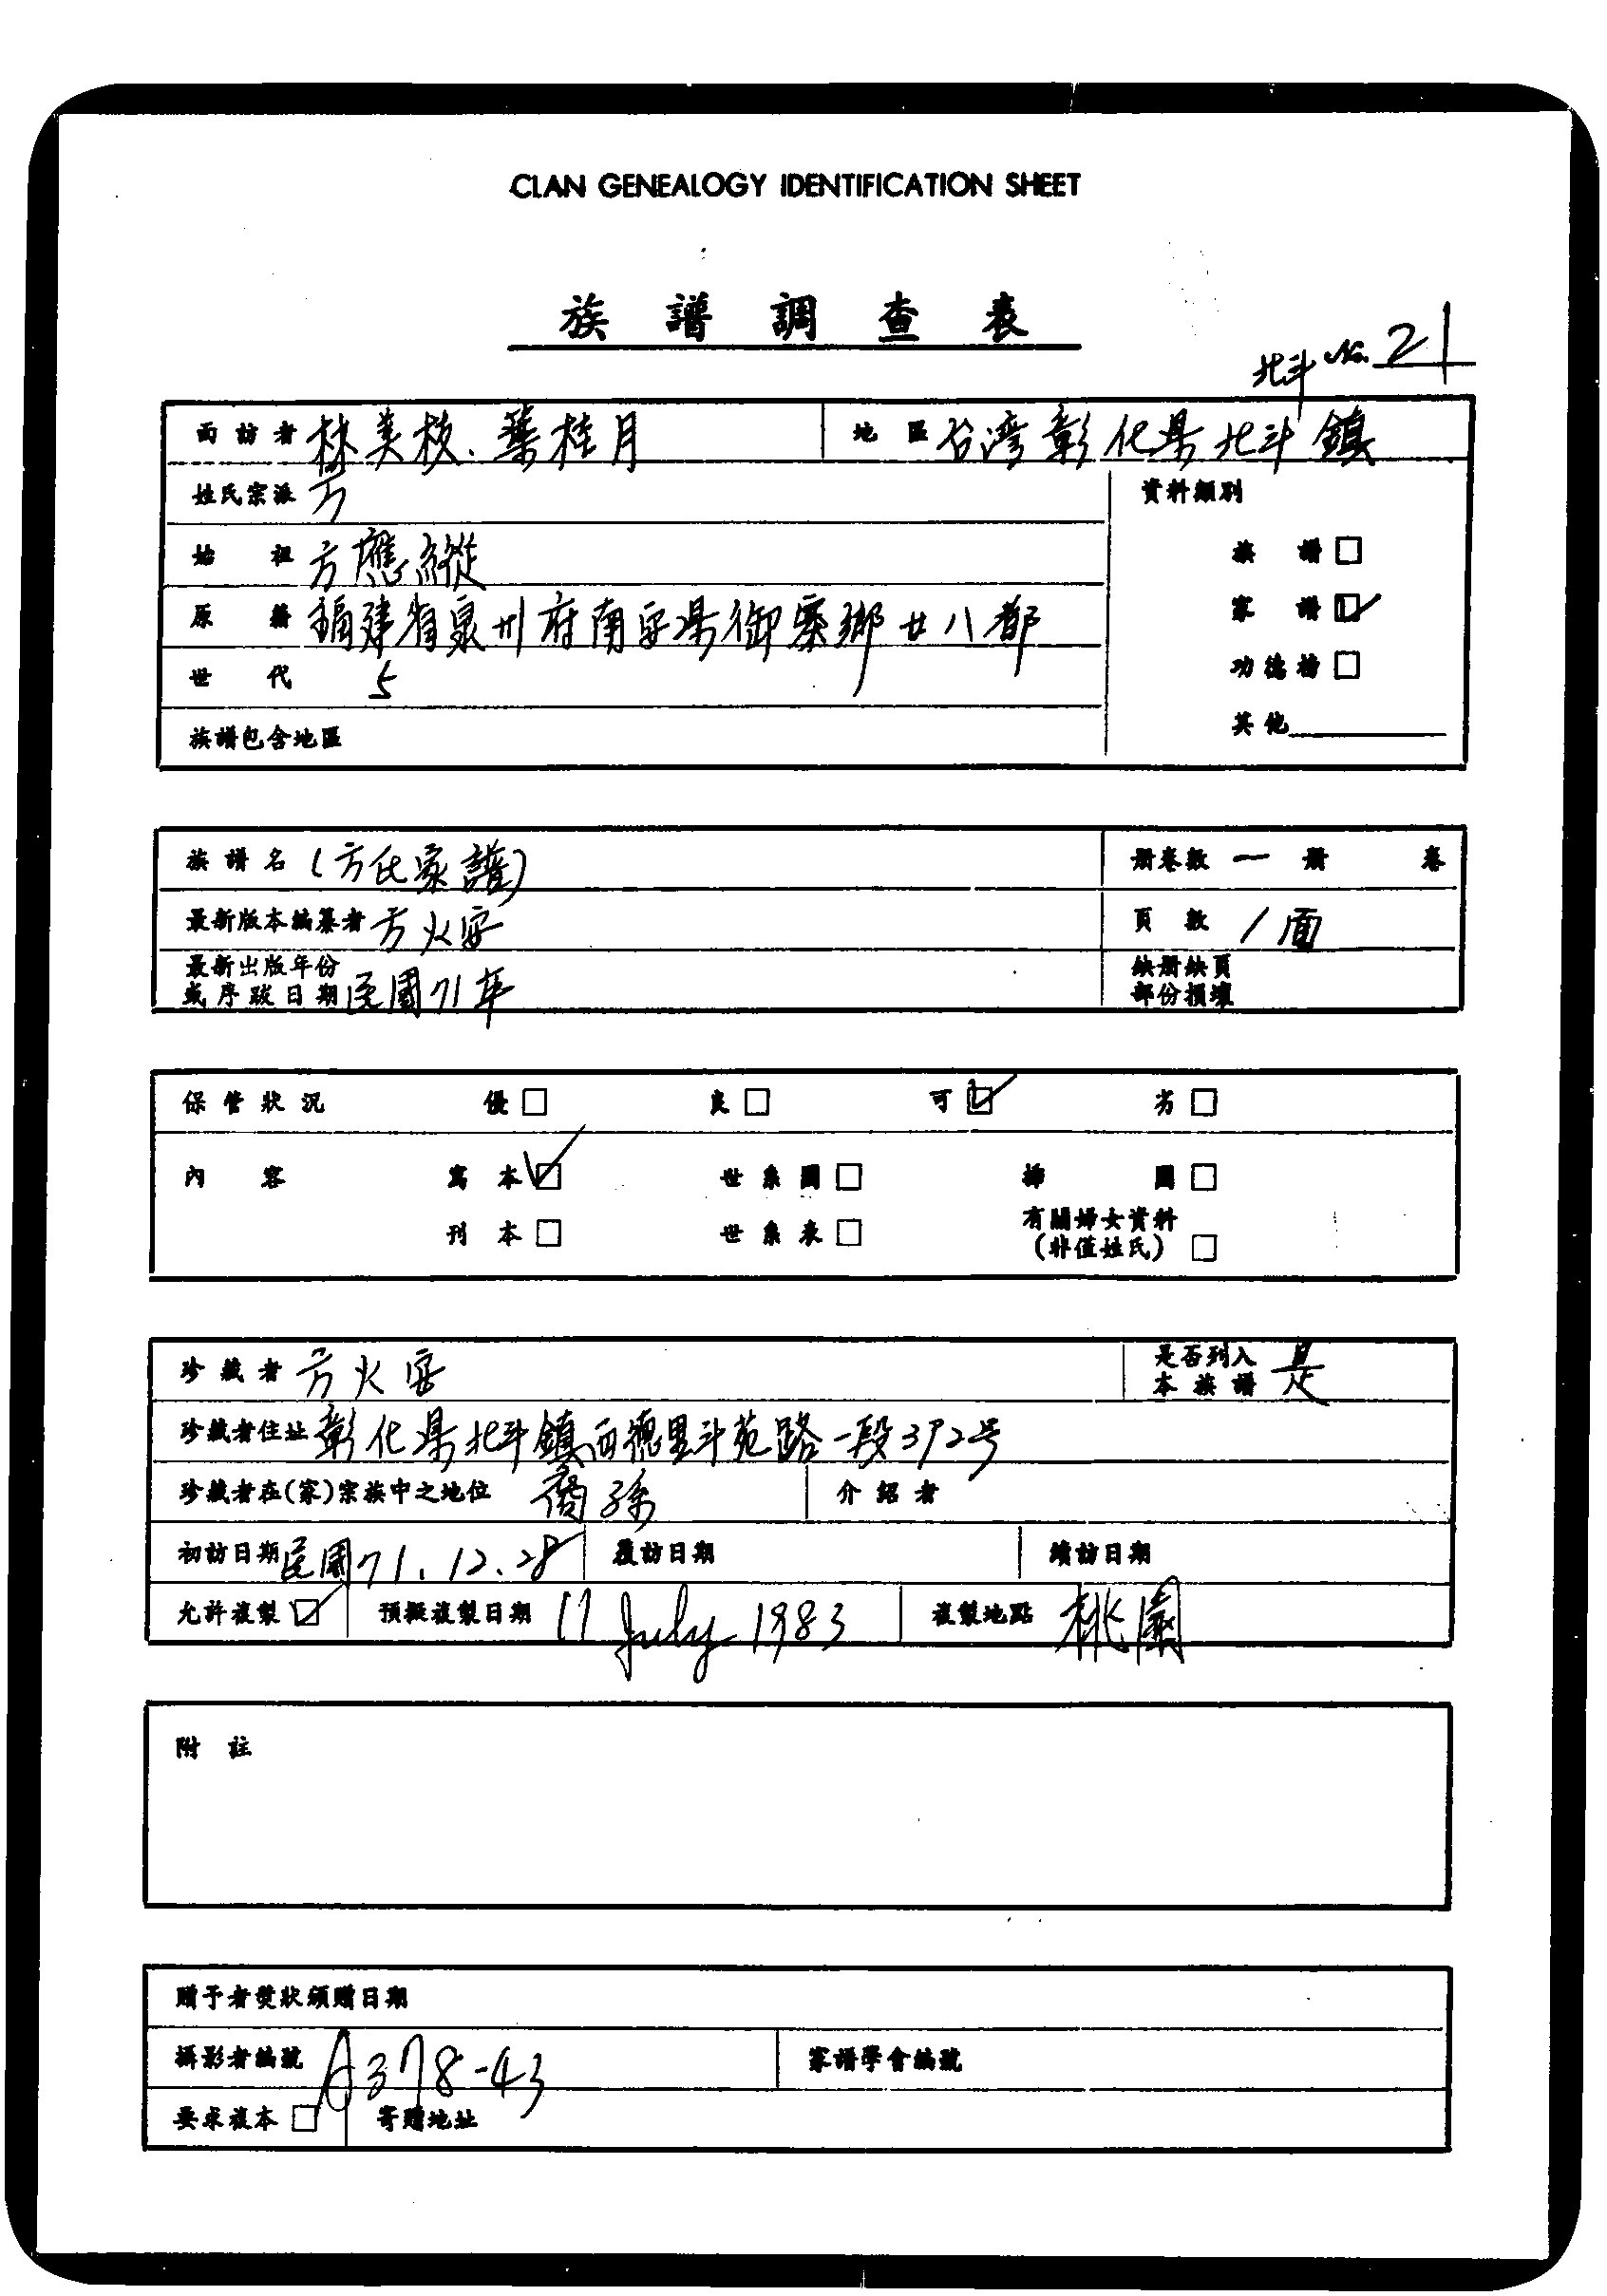 CLAN GENEALOGY IDENTIFICATION SHEET
族譜調查表
北斗 No. 21
面訪者 林美枝.葉桂月 地區 台湾彰化県北斗鎮
姓氏宗派 方 資料類別
始祖 方應縱 族譜□
原籍 福建省泉州府南安県御寨鄉廿八都 家譜☑
世代 5 功德榜□
族譜包含地區 其他
族譜名 (方氏家譜) 册卷數 一 册 卷
最新版本編纂者 方火安 頁數 1面
最新出版年份 缺册缺頁
或序跋日期 民國71年 部份損壞
保管狀況 優□ 良□ 可☑ 劣□
內容 寫本☑ 世系圖□ 插圖□
刊本□ 世系表□ 有關婦女資料
(非僅姓氏)□
珍藏者 方火安 是否列入
本族譜 是
珍藏者住址 彰化県北斗鎮西德里斗苑路一段392号
珍藏者在(家)宗族中之地位 裔孫 介紹者
初訪日期 民國71.12.28 覆訪日期 續訪日期
允許複製☑ 預擬複製日期 11 July 1983 複製地點 桃園
附註
贈予者獎狀頒贈日期
攝影者編號 A378-43 家譜學會編號
要求複本□ 寄贈地址